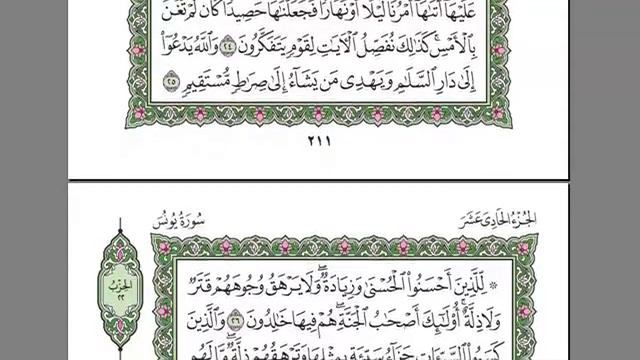 عَلَيْهَآ أَتَىٰهَآ أَمْرُنَا لَيْلًا أَوْ نَهَارًا فَجَعَلْنَٰهَا حَصِيدًا كَأَن لَّمْ تَغْنَ
بِٱلْأَمْسِۚ كَذَٰلِكَ نُفَصِّلُ ٱلْءَايَٰتِ لِقَوْمٍ يَتَفَكَّرُونَ ٢٤ وَٱللَّهُ يَدْعُوٓا۟
إِلَىٰ دَارِ ٱلسَّلَٰمِ وَيَهْدِى مَن يَشَآءُ إِلَىٰ صِرَٰطٍ مُّسْتَقِيمٍ ٢٥
٢١١
الجُزْءُ الحَادِى عَشَرَ
سُورَةُ يُونُسَ
الحِزْبُ
٢٢
* لِّلَّذِينَ أَحْسَنُوا۟ ٱلْحُسْنَىٰ وَزِيَادَةٌۖ وَلَا يَرْهَقُ وُجُوهَهُمْ قَتَرٌ
وَلَا ذِلَّةٌۚ أُو۟لَٰٓئِكَ أَصْحَٰبُ ٱلْجَنَّةِۖ هُمْ فِيهَا خَٰلِدُونَ ٢٦ وَٱلَّذِينَ
كَسَبُوا۟ ٱلسَّيِّـَٔاتِ جَزَآءُ سَيِّئَةٍۭ بِمِثْلِهَا وَتَرْهَقُهُمْ ذِلَّةٌۖ مَّا لَهُم